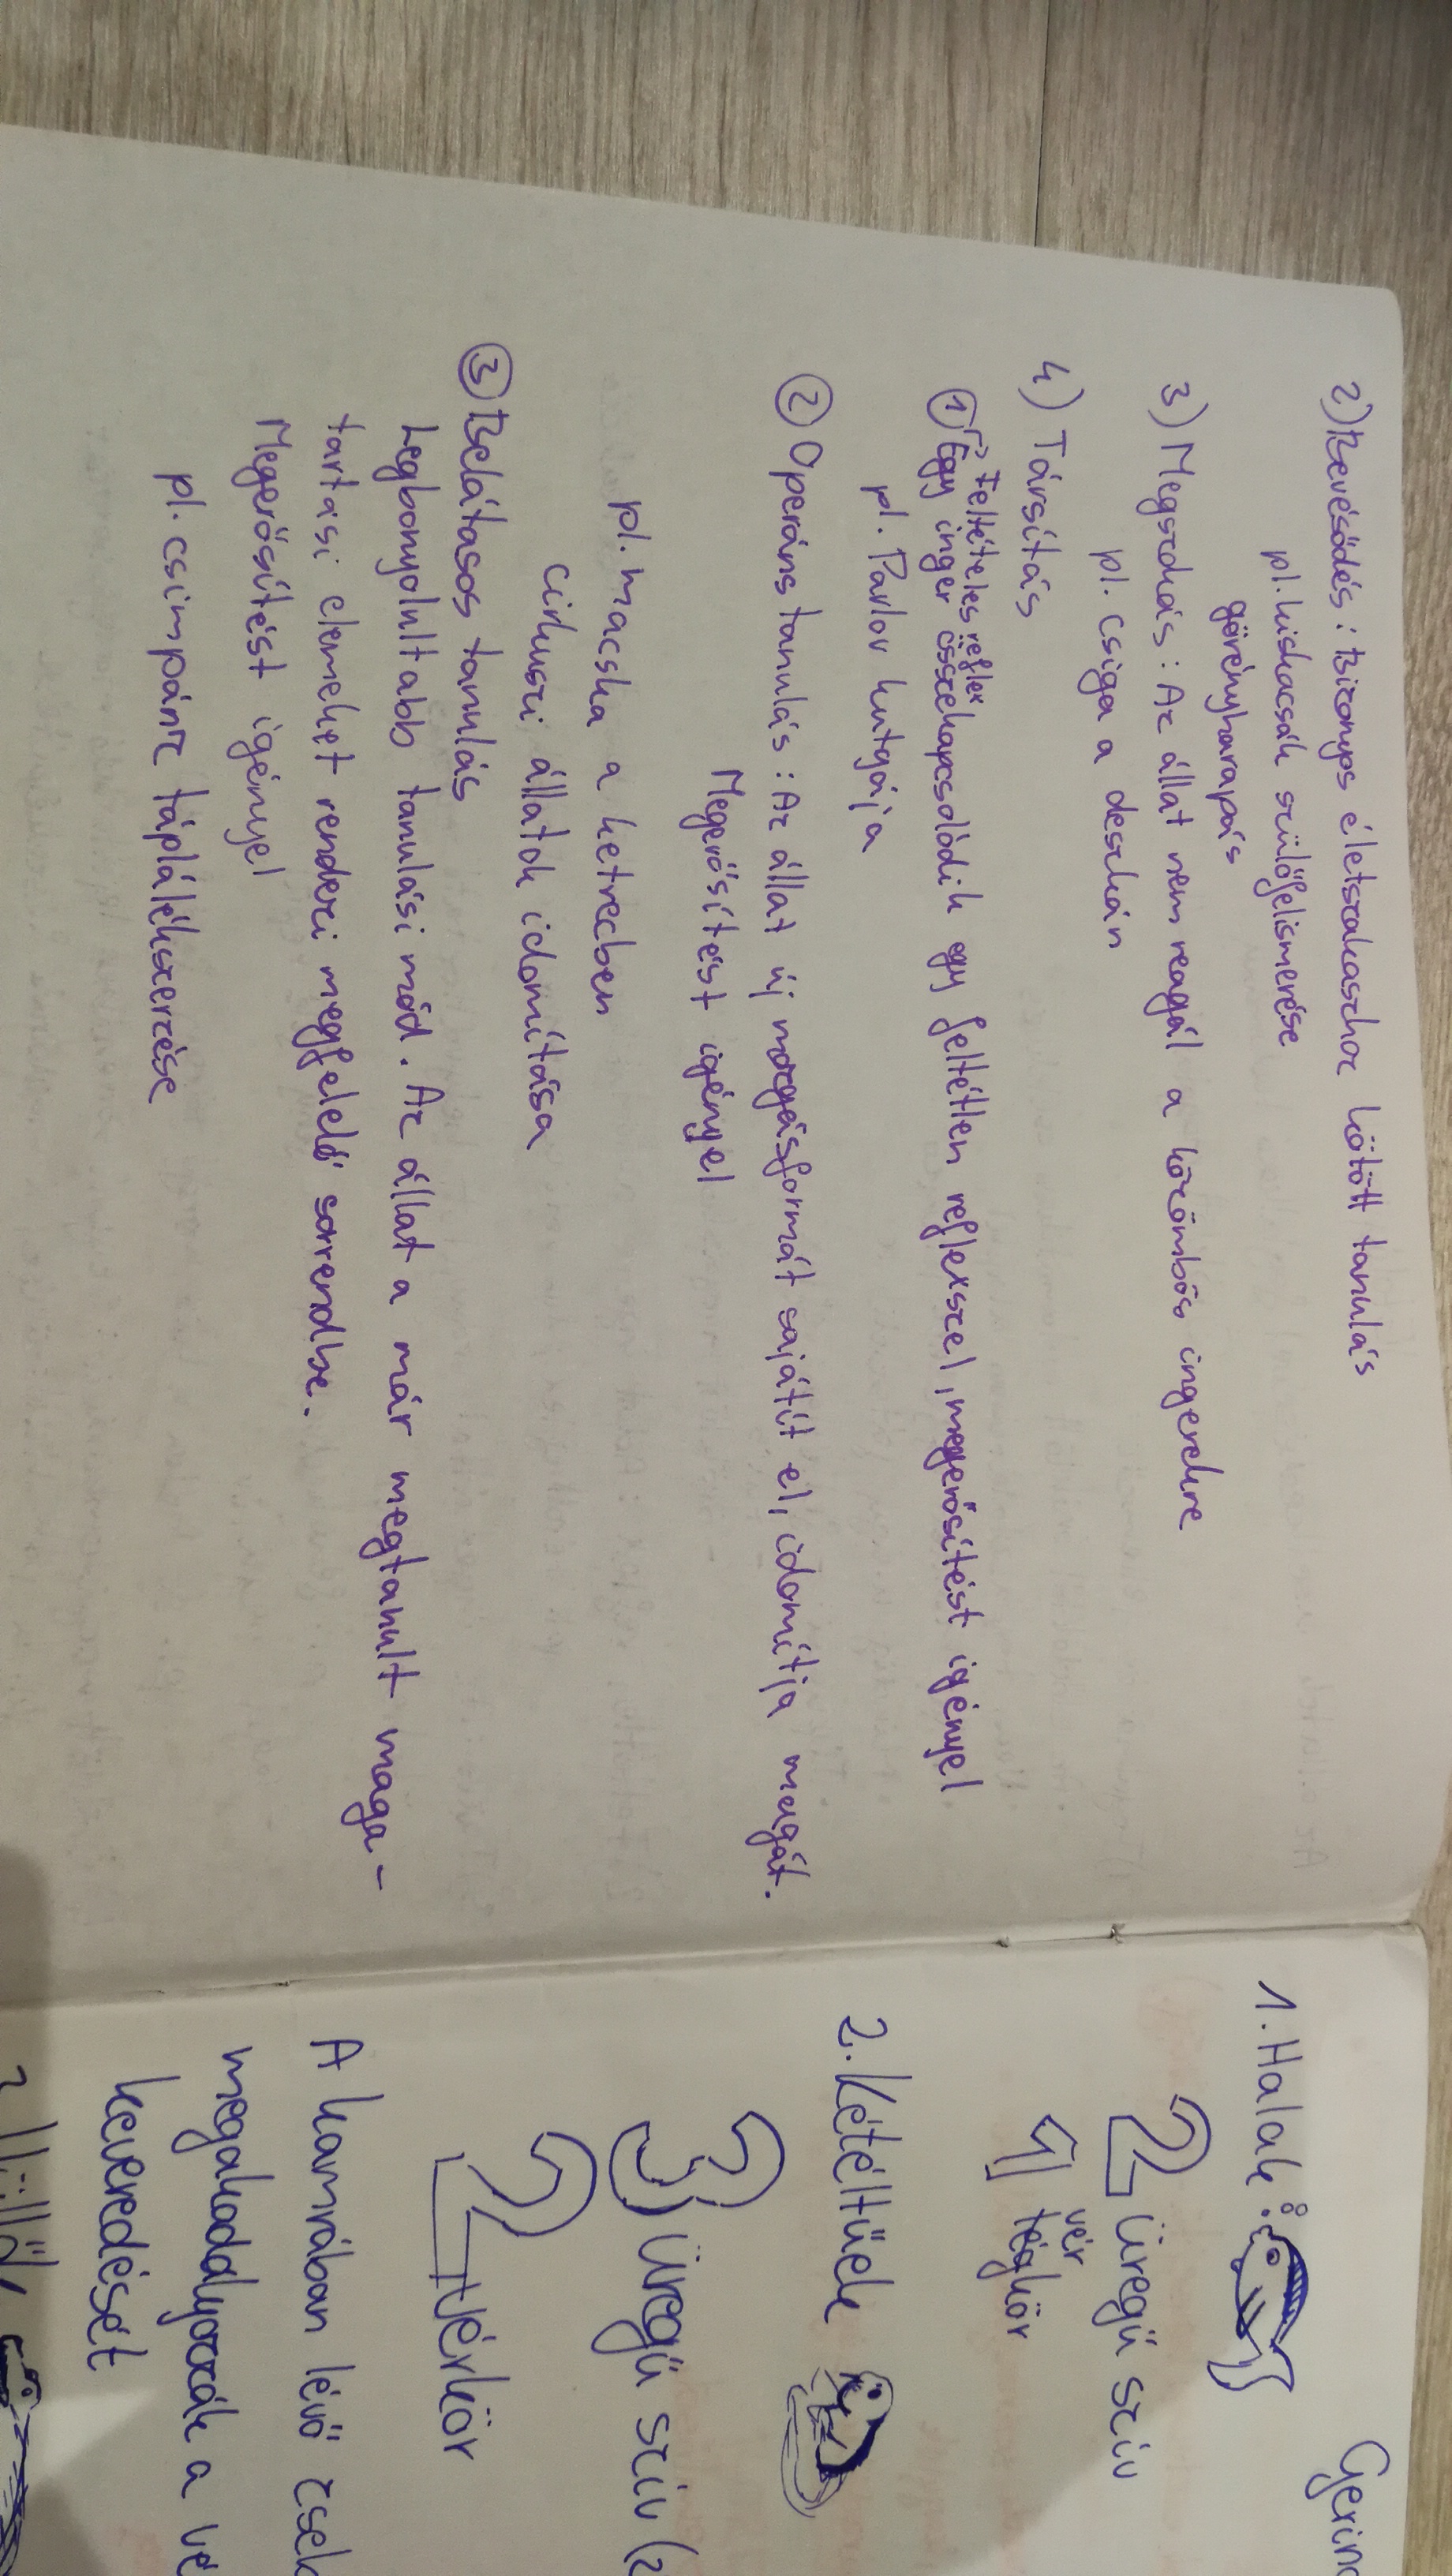 2) Bevésődés: Bizonyos életszakaszhoz kötött tanulás
pl. kiskacsák szülőfelismerése
görényharapás
3) Megszokás: Az állat nem reagál a közömbös ingerekre
pl. csiga a deszkán
4) Társítás
↱ Feltételes reflex
① Egy inger összekapcsolódik egy feltétlen reflexszel, megerősítést igényel.
pl. Pavlov kutyája
② Operáns tanulás: Az állat új mozgásformát sajátít el, idomítja magát.
Megerősítést igényel
pl. macska a ketrecben
cirkuszi állatok idomítása
③ Belátásos tanulás
Legbonyolultabb tanulási mód. Az állat a már megtanult maga-
tartási elemeket rendezi megfelelő sorrendbe.
Megerősítést igényel
pl. csimpánz táplálékszerzése
Gerinc
1. Halak:
2 üregű szív
1 vérkör
2. Kétéltűek
3 üregű szív (2
2 vérkör
A kamrában lévő zseb
megakadályozzák a vé
keveredését